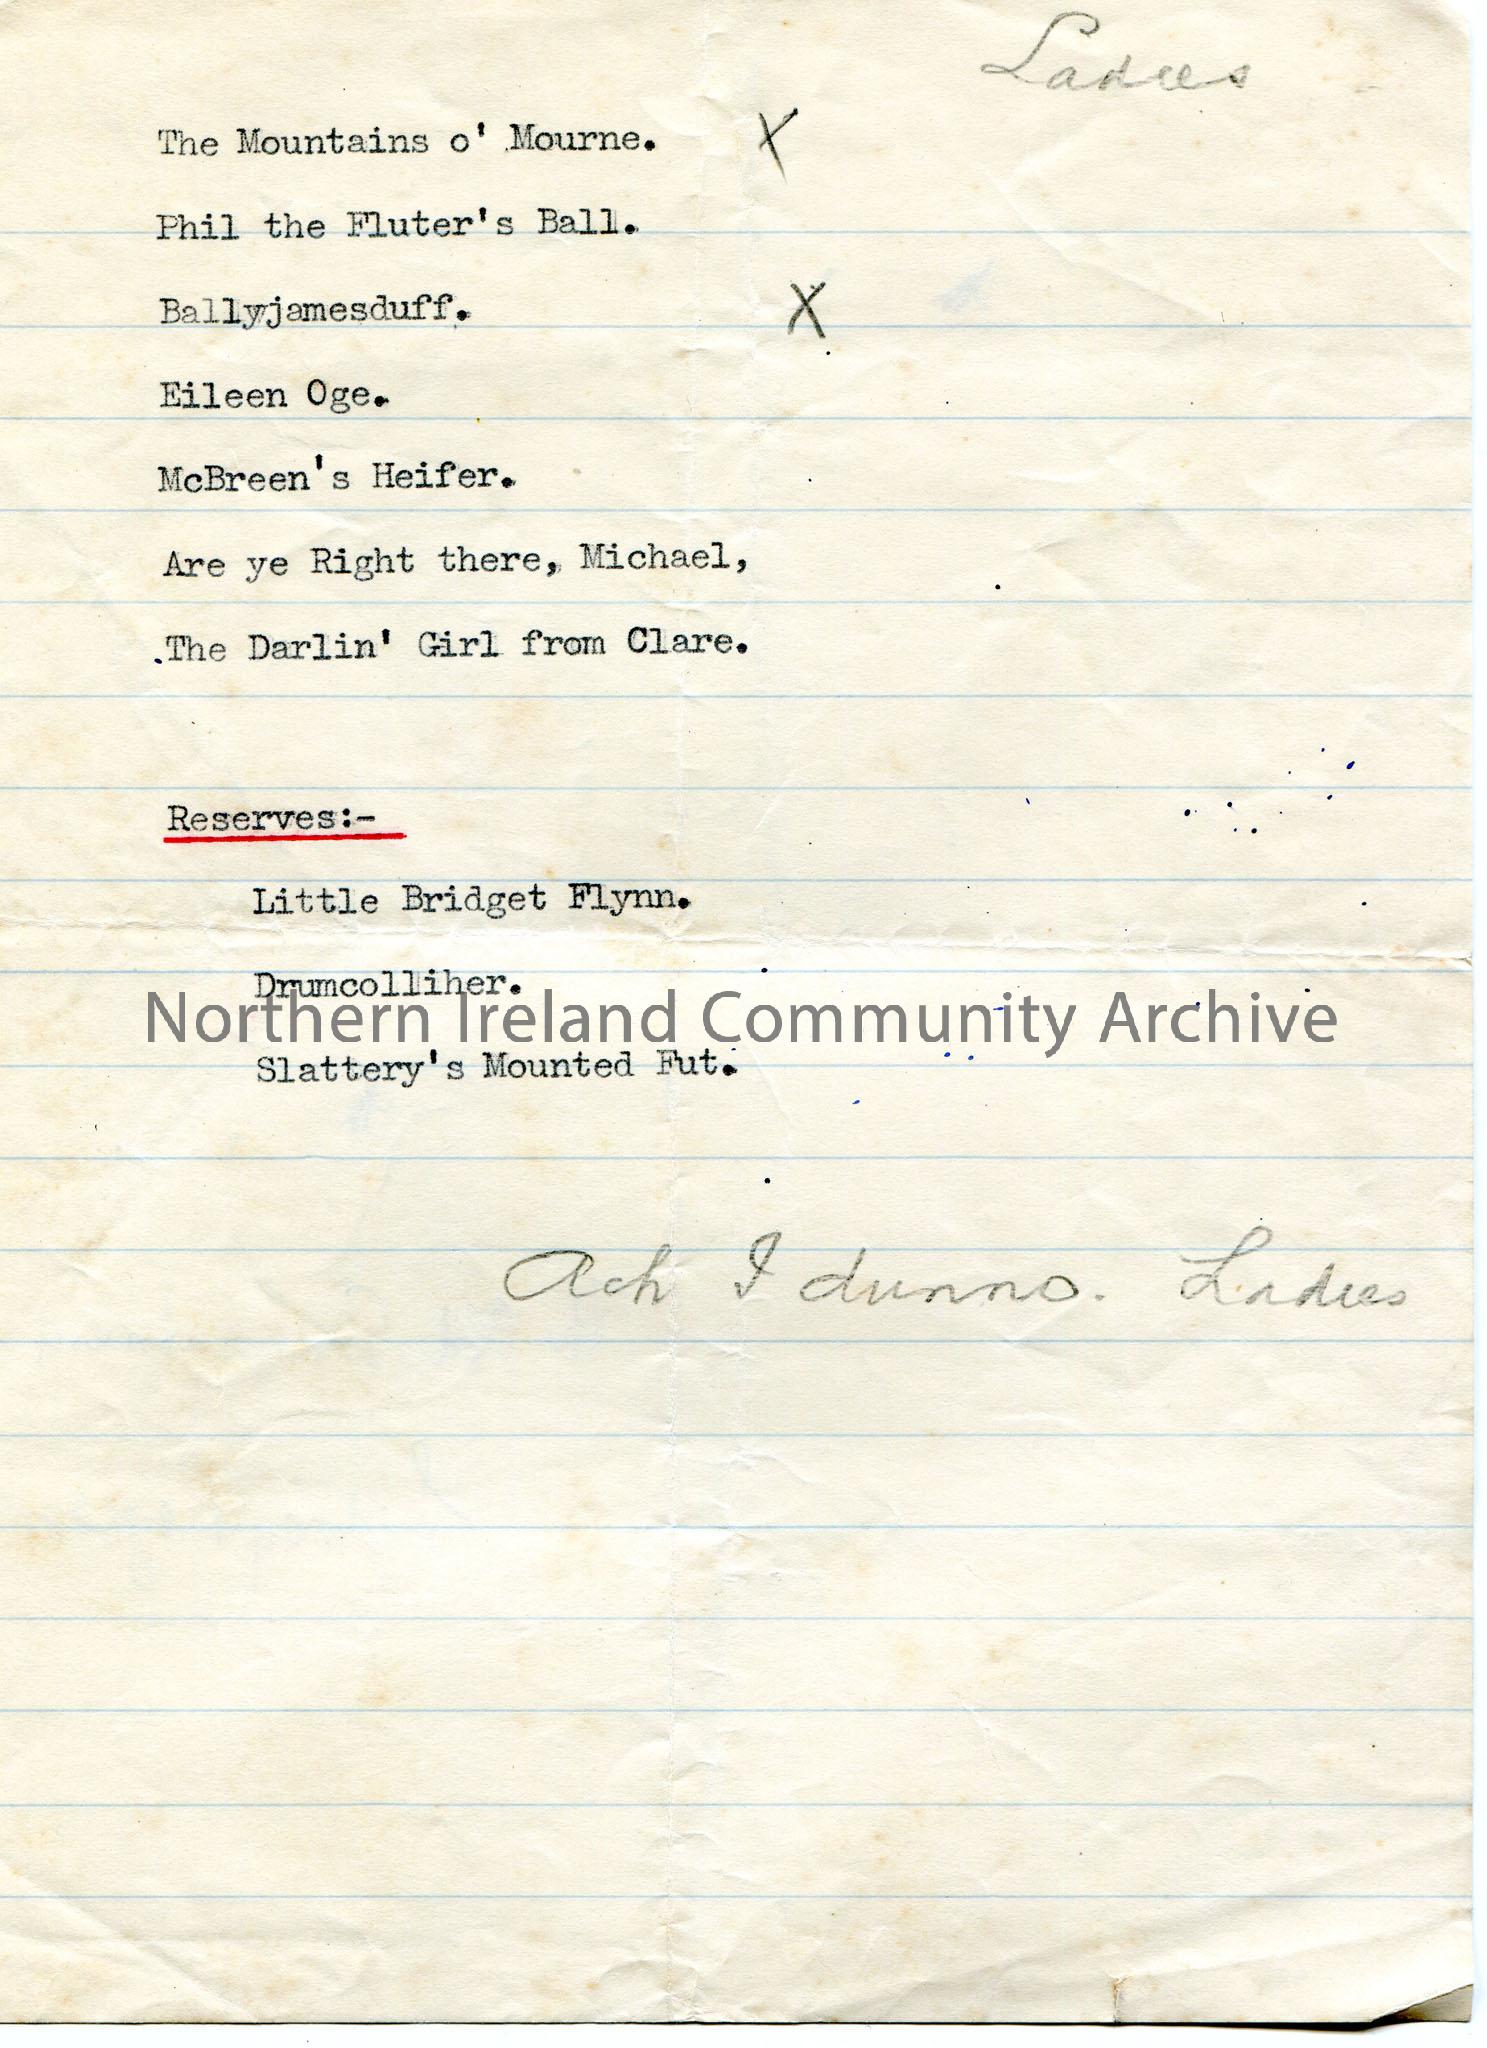 Ladies
The Mountains o' Mourne. X
Phil the Fluter's Ball.
Ballyjamesduff. X
Eileen Oge.
McBreen's Heifer.
Are ye Right there, Michael,
The Darlin' Girl from Clare.
Reserves:-
Little Bridget Flynn.
Drumcolliher.
Northern Ireland Community Archive
Slattery's Mounted Fut.
Ach I dunno. Ladies